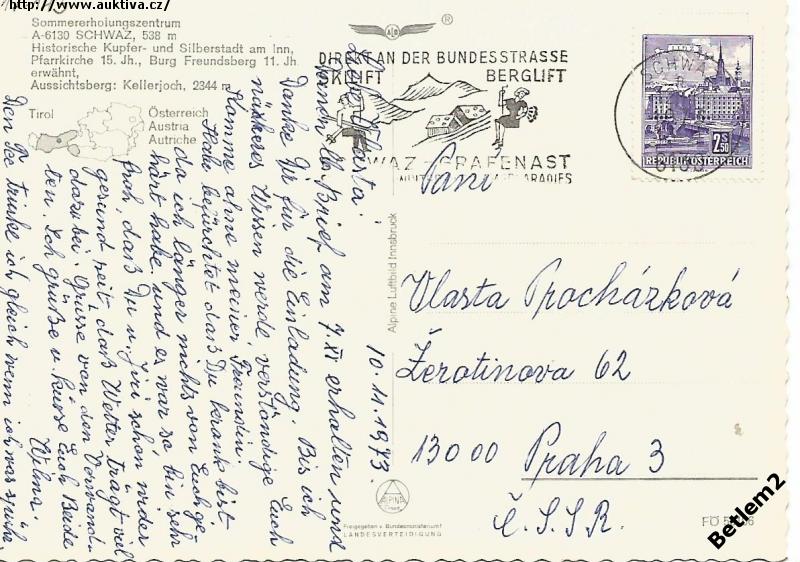 http://www.auktiva.cz/
Sommererholungszentrum
A-6130 SCHWAZ, 538 m
Historische Kupfer- und Silberstadt am Inn,
Pfarrkirche 15. Jh., Burg Freundsberg 11. Jh.
erwähnt,
Aussichtsberg: Kellerjoch, 2344 m
Tirol
Österreich
Austria
Autriche
DIREKT AN DER BUNDESSTRASSE
SKILIFT BERGLIFT
WAZ-GRAFENAST
SCHWAZ
2S50
REPUBLIK ÖSTERREICH
10.11.1973.
Liebe Vlasta!
Brief am 7. XI erhalten und
Danke Dir für die Einladung. Bis ich
näheres Wissen werde, verständige Euch
Komme ohne meiner Freundin.
Habe befürchtet daß Du krank bist
da ich länger nichts von Euch ge-
hört habe. und er war so, bin sehr
froh, daß Du u. Jiri schon wieder
gesund seit, daß Wetter trägt viel
dazu bei. Grüsse von den Verwand-
ten. Ich grüße u. küsse Euch Beide
Wilma.
Den Tee trinke ich gleich wenn ich was spüre.
Alpine Luftbild Innsbruck
Paní
Vlasta Procházková
Žerotínova 62
130 00 Praha 3
Č.S.S.R.
ALPINE
Freigegeben v. Bundesministerium f.
LANDESVERTEIDIGUNG
FÖ
Betlem2